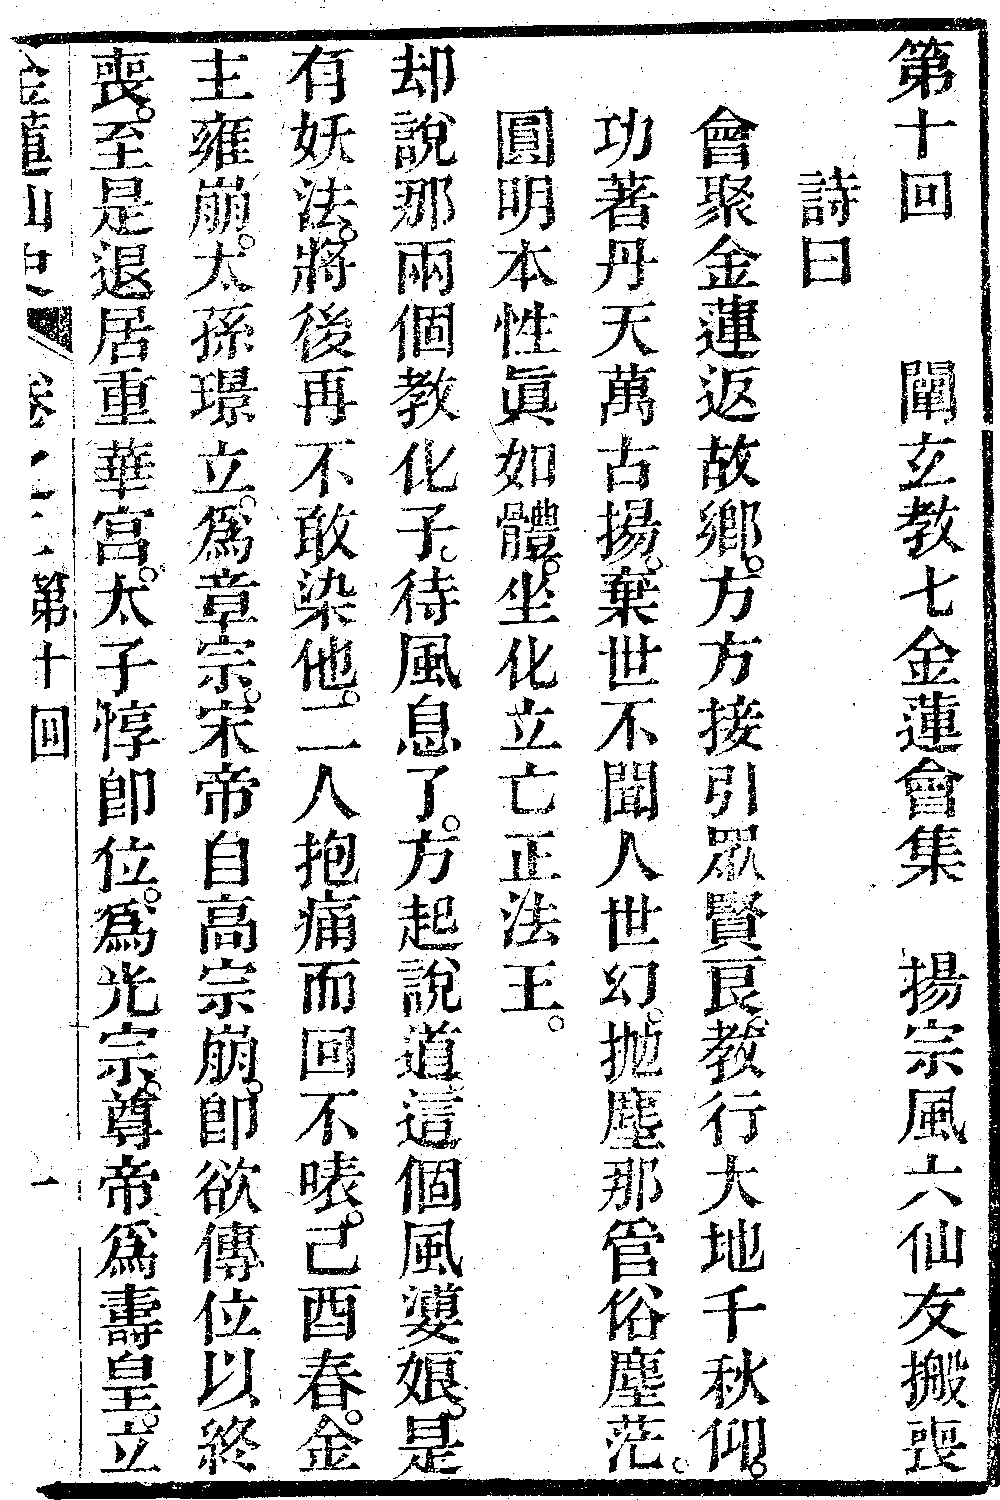 第十回　闡玄教七金蓮會集　揚宗風六仙友搬喪
詩曰
會聚金蓮返故鄉。方方接引眾賢良。教行大地千秋仰。
功著丹天萬古揚。棄世不聞人世幻。拋塵那管俗塵茫。
圓明本性眞如體。坐化立亡正法王。
却說那兩個教化子。待風息了。方起說道。這個風婆娘。是
有妖法。將後再不敢染他。二人抱痛而回不表。己酉春。金
主雍崩。太孫璟立。爲章宗。宋帝自高宗崩。卽欲傳位以終
喪。至是退居重華宮。太子惇卽位。爲光宗。尊帝爲壽皇。立
金蓮仙史　卷之二　第十回　一